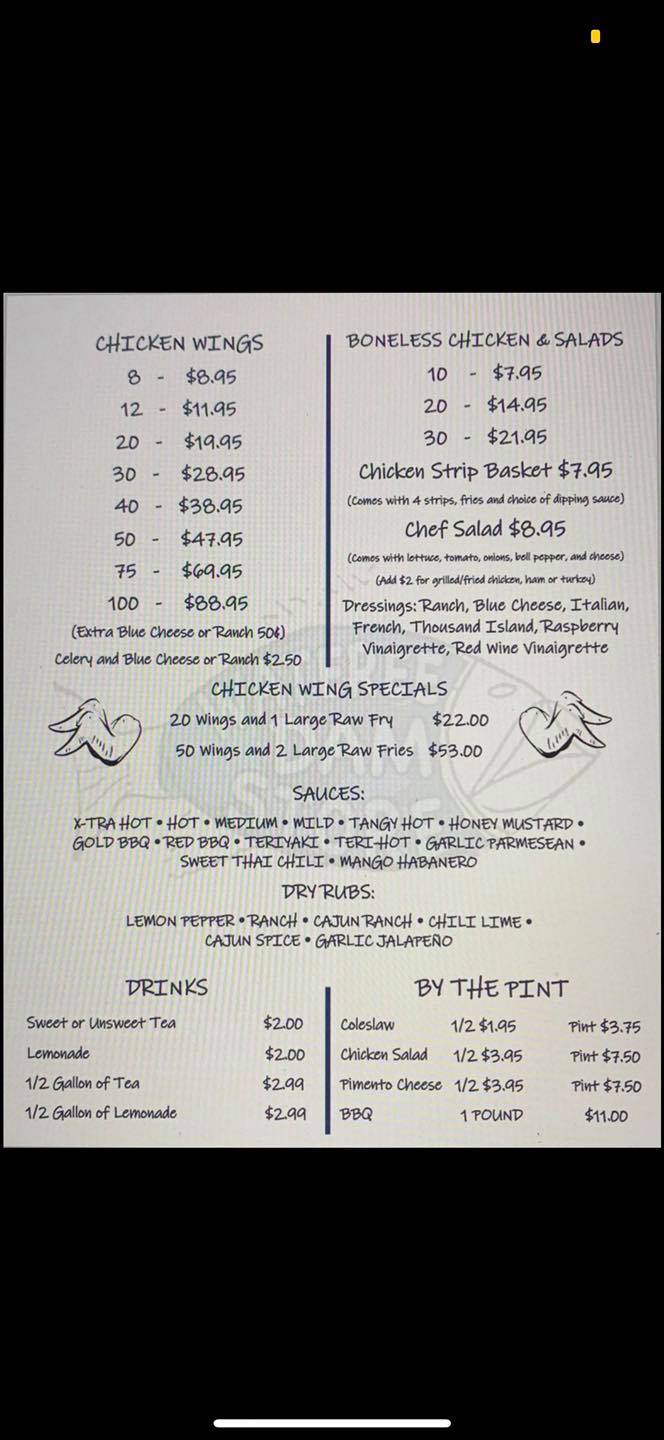 CHICKEN WINGS
8 - $8.95
12 - $11.95
20 - $19.95
30 - $28.95
40 - $38.95
50 - $47.95
75 - $69.95
100 - $88.95
(Extra Blue Cheese or Ranch 50¢)
Celery and Blue Cheese or Ranch $2.50
BONELESS CHICKEN & SALADS
10 - $7.95
20 - $14.95
30 - $21.95
Chicken Strip Basket $7.95
(Comes with 4 strips, fries and choice of dipping sauce)
Chef Salad $8.95
(Comes with lettuce, tomato, onions, bell pepper, and cheese)
(Add $2 for grilled/fried chicken, ham or turkey)
Dressings: Ranch, Blue Cheese, Italian,
French, Thousand Island, Raspberry
Vinaigrette, Red Wine Vinaigrette
CHICKEN WING SPECIALS
20 Wings and 1 Large Raw Fry $22.00
50 Wings and 2 Large Raw Fries $53.00
SAUCES:
X-TRA HOT • HOT • MEDIUM • MILD • TANGY HOT • HONEY MUSTARD •
GOLD BBQ • RED BBQ • TERIYAKI • TERI-HOT • GARLIC PARMESEAN •
SWEET THAI CHILI • MANGO HABANERO
DRY RUBS:
LEMON PEPPER • RANCH • CAJUN RANCH • CHILI LIME •
CAJUN SPICE • GARLIC JALAPEÑO
DRINKS
Sweet or Unsweet Tea $2.00
Lemonade $2.00
1/2 Gallon of Tea $2.99
1/2 Gallon of Lemonade $2.99
BY THE PINT
Coleslaw 1/2 $1.95 Pint $3.75
Chicken Salad 1/2 $3.95 Pint $7.50
Pimento Cheese 1/2 $3.95 Pint $7.50
BBQ 1 POUND $11.00